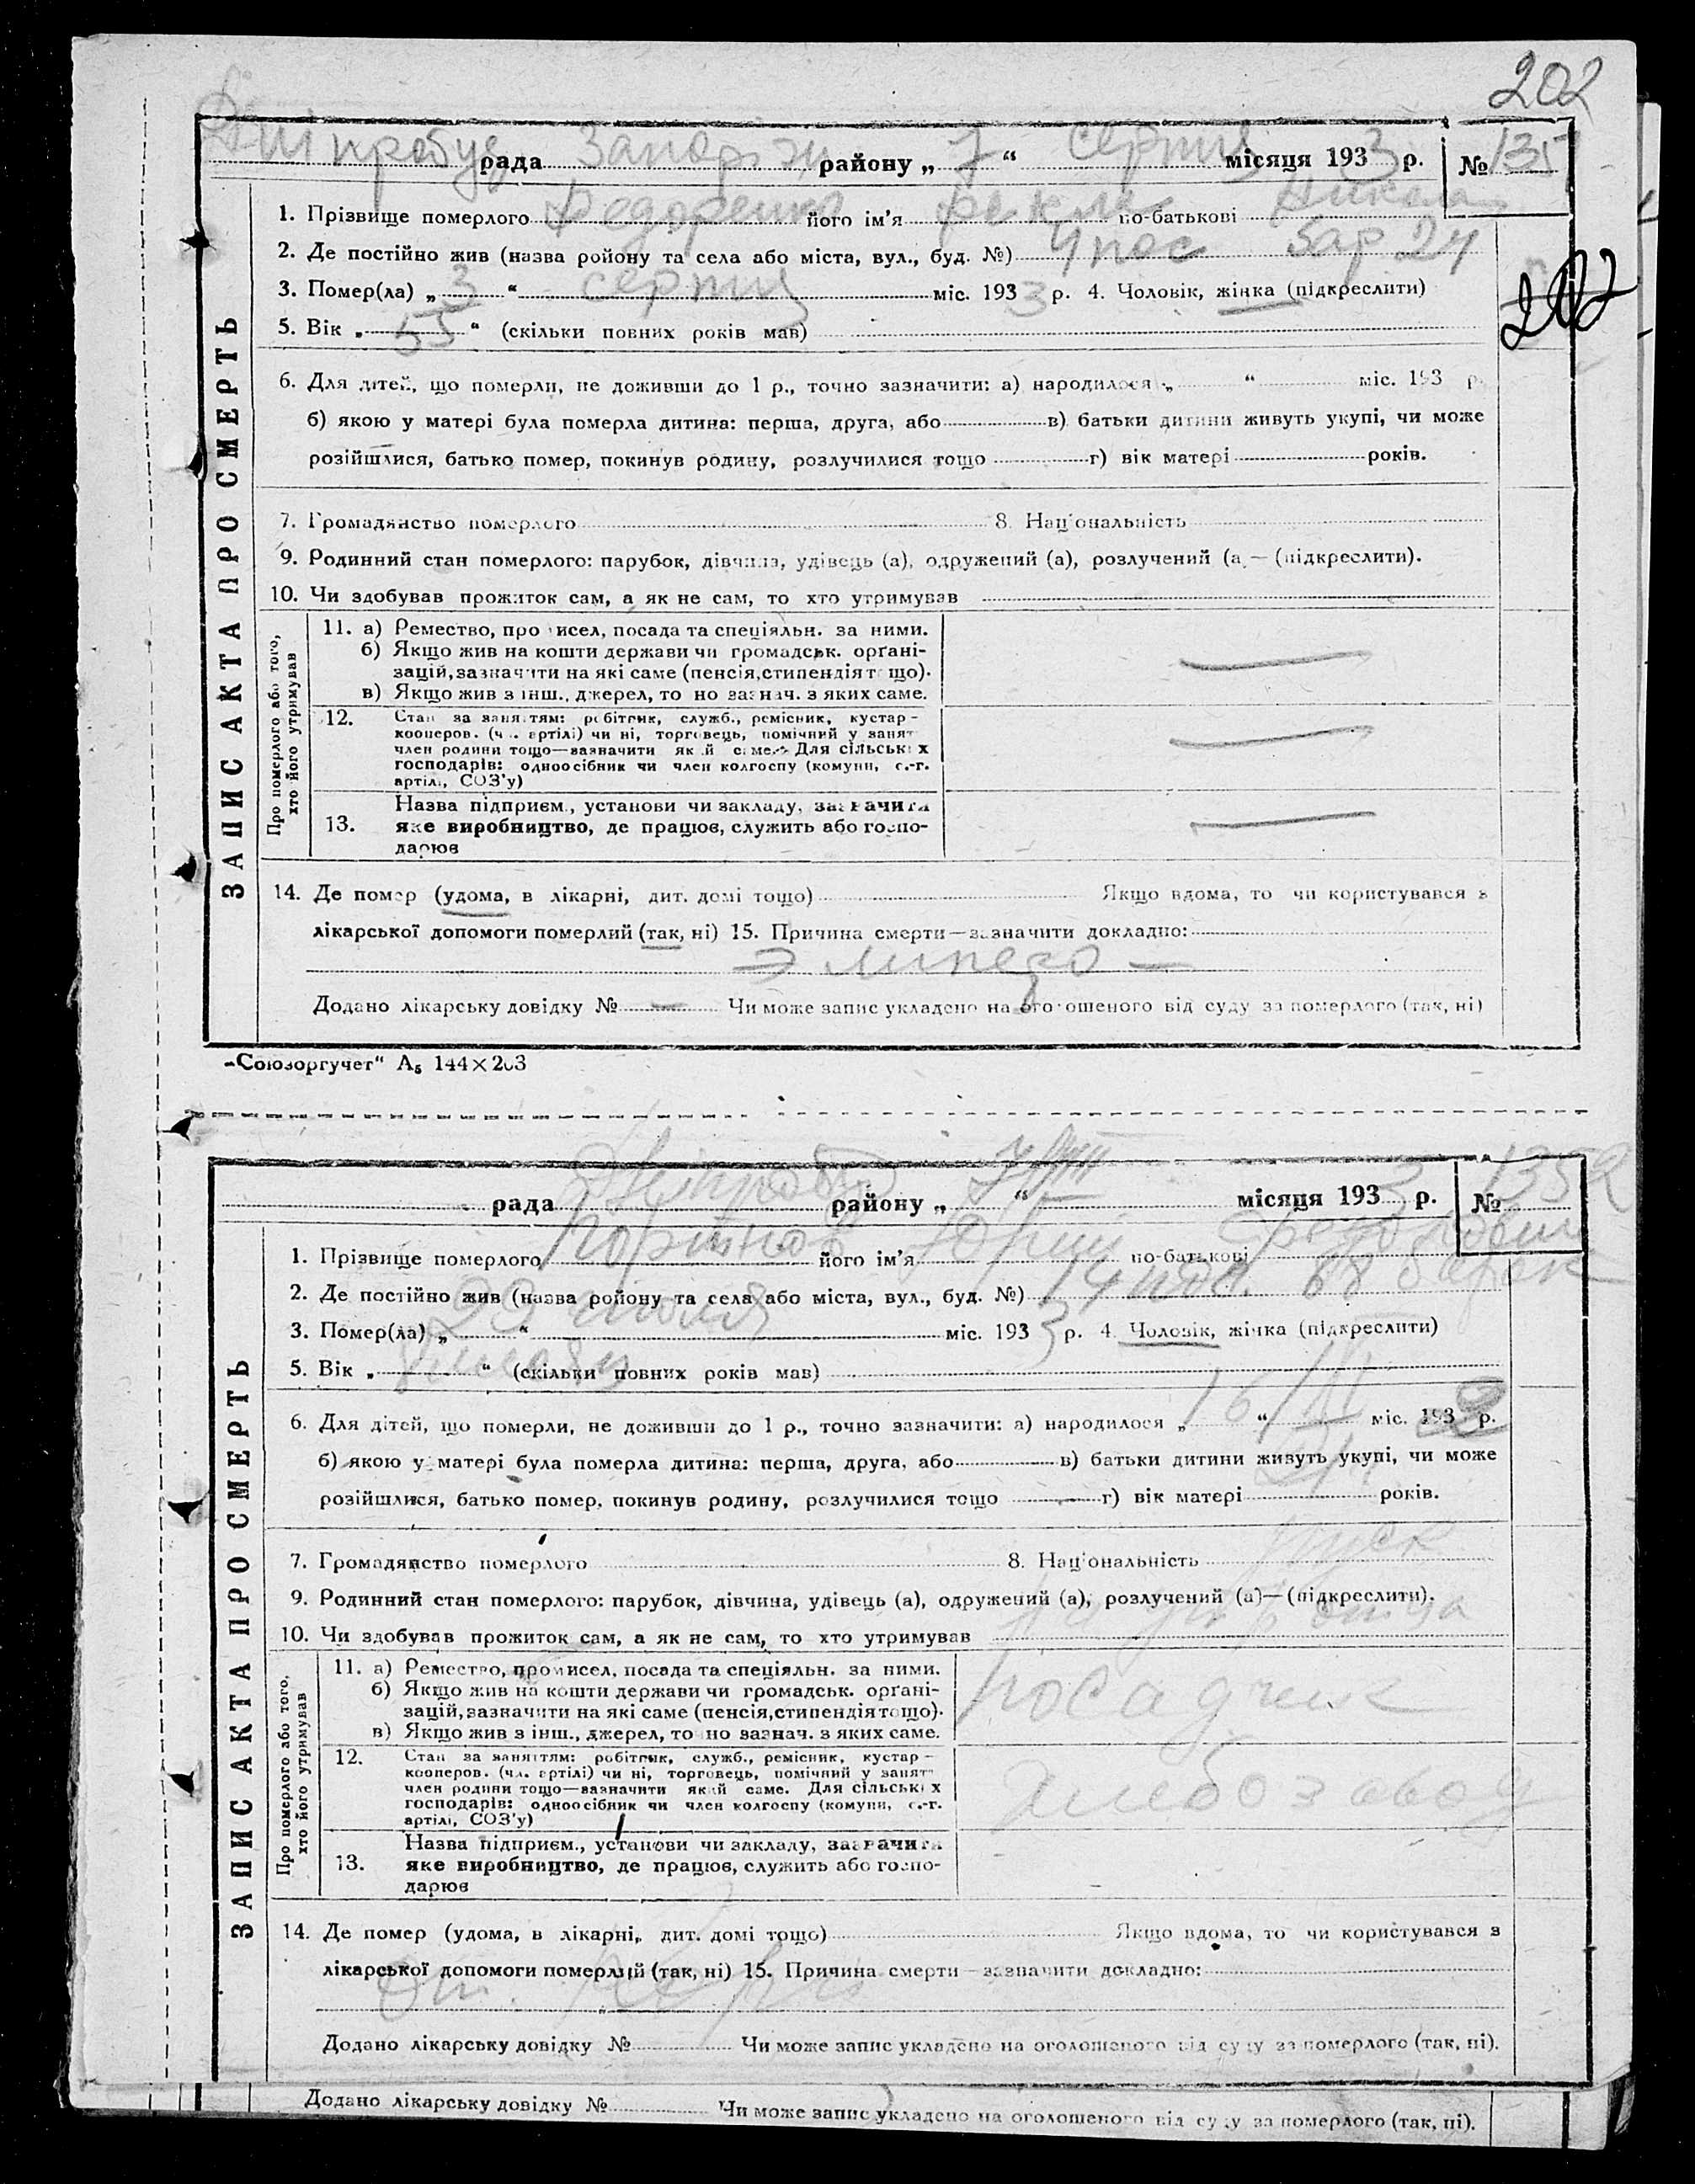 202
Дніпробуд рада Запоріж району „ 7 “ серпня місяця 1933 р. № 135
1. Прізвище померлого Федоренко його ім’я Фекла по-батькові
2. Де постійно жив (назва ройону та села або міста, вул., буд. №) 4 пос бар 24
3. Помер(ла) „ 3 “ серпня міс. 1933 р. 4. Чоловік, жінка (підкреслити)
202
5. Вік „ 55 “ (скільки повних років мав)
6. Для дітей, що померли, не доживши до 1 р., точно зазначити: а) народилося „ “ міс. 193 р.
б) якою у матері була померла дитина: перша, друга, або в) батьки дитини живуть укупі, чи може
розійшлися, батько помер, покинув родину, розлучилися тощо г) вік матері років.
7. Громадянство померлого 8. Національність
9. Родинний стан померлого: парубок, дівчина, удівець (а), одружений (а), розлучений (а — (підкреслити).
10. Чи здобував прожиток сам, а як не сам, то хто утримував
ЗАПИС АКТА ПРО СМЕРТЬ
Про померлого або того,
хто його утримував
11. а) Ремество, промисел, посада та спеціяльн. за ними.
б) Якщо жив на кошти держави чи громадськ. органі-
зацій, зазначити на які саме (пенсія, стипендія тощо).
в) Якщо жив з інш., джерел, то но зазнач. з яких саме.
12. Стан за заняттям: робітник, служб., ремісник, кустар –
кооперов. (чл. артілі) чи ні, торговець, помічний у занят
член родини тощо—вазначити який саме. Для сільських
господарів: одноосібник чи член колгоспу (комуни, с.-г.
артілі, СОЗ’у)
Назва підприєм., установи чи закладу, зазначити
13. яке виробництво, де працюв, служить або госпо-
дарюв
14. Де помер (удома, в лікарні, дит. домі тощо) Якщо вдома, то чи користувався з
лікарської допомоги померлий (так, ні) 15. Причина смерти—зазначити докладно:
Додано лікарську довідку № — Чи може запис укладено на оголошеного від суду за померлого (так, ні)
„Союзоргучет“ А₅ 144×203
рада Дніпробуд району „ 7/VIII “ місяця 1933 р. № 1352
1. Прізвище померлого його ім’я Юрий по-батькові
2. Де постійно жив (назва ройону та села або міста, вул., буд. №) 14 пос. 68 барак
3. Помер(ла) „ 29 “ июля міс. 1933 р. 4. Чоловік, жінка (підкреслити)
5. Вік „ “ (скільки повних років мав)
6. Для дітей, що померли, не доживши до 1 р., точно зазначити: а) народилося „ 16 “ міс. 193 р.
б) якою у матері була померла дитина: перша, друга, або в) батьки дитини живуть укупі, чи може
розійшлися, батько помер, покинув родину, розлучилися тощо г) вік матері років.
7. Громадянство померлого 8. Національність руск
9. Родинний стан померлого: парубок, дівчина, удівець (а), одружений (а), розлучений (а)—(підкреслити).
10. Чи здобував прожиток сам, а як не сам, то хто утримував
ЗАПИС АКТА ПРО СМЕРТЬ
Про померлого або того,
хто його утримував
11. а) Ремество, промисел, посада та спеціяльн. за ними.
б) Якщо жив на кошти держави чи громадськ. органі-
зацій, зазначити на які саме (пенсія, стипендія тощо).
в) Якщо жив з інш., джерел, то но зазнач. з яких саме.
посадчик
12. Стан за заняттям: робітник, служб., ремісник, кустар –
кооперов. (чл. артілі) чи ні, торговець, помічний у занят
член родини тощо—вазначити який саме. Для сільських
господарів: одноосібник чи член колгоспу (комуни, с.-г.
артілі, СОЗ’у)
хлебозавод
Назва підприєм., установи чи закладу, зазначити
13. яке виробництво, де працюв, служить або госпо-
дарюв
14. Де помер (удома, в лікарні, дит. домі тощо) Якщо вдома, то чи користувався з
лікарської допомоги померлий (так, ні) 15. Причина смерти—зазначити докладно:
Додано лікарську довідку № Чи може запис укладено на оголошеного від суду за померлого (так, ні).
Додано лікарську довідку № Чи може запис укладено на оголошеного від суду за померлого (так, ні).